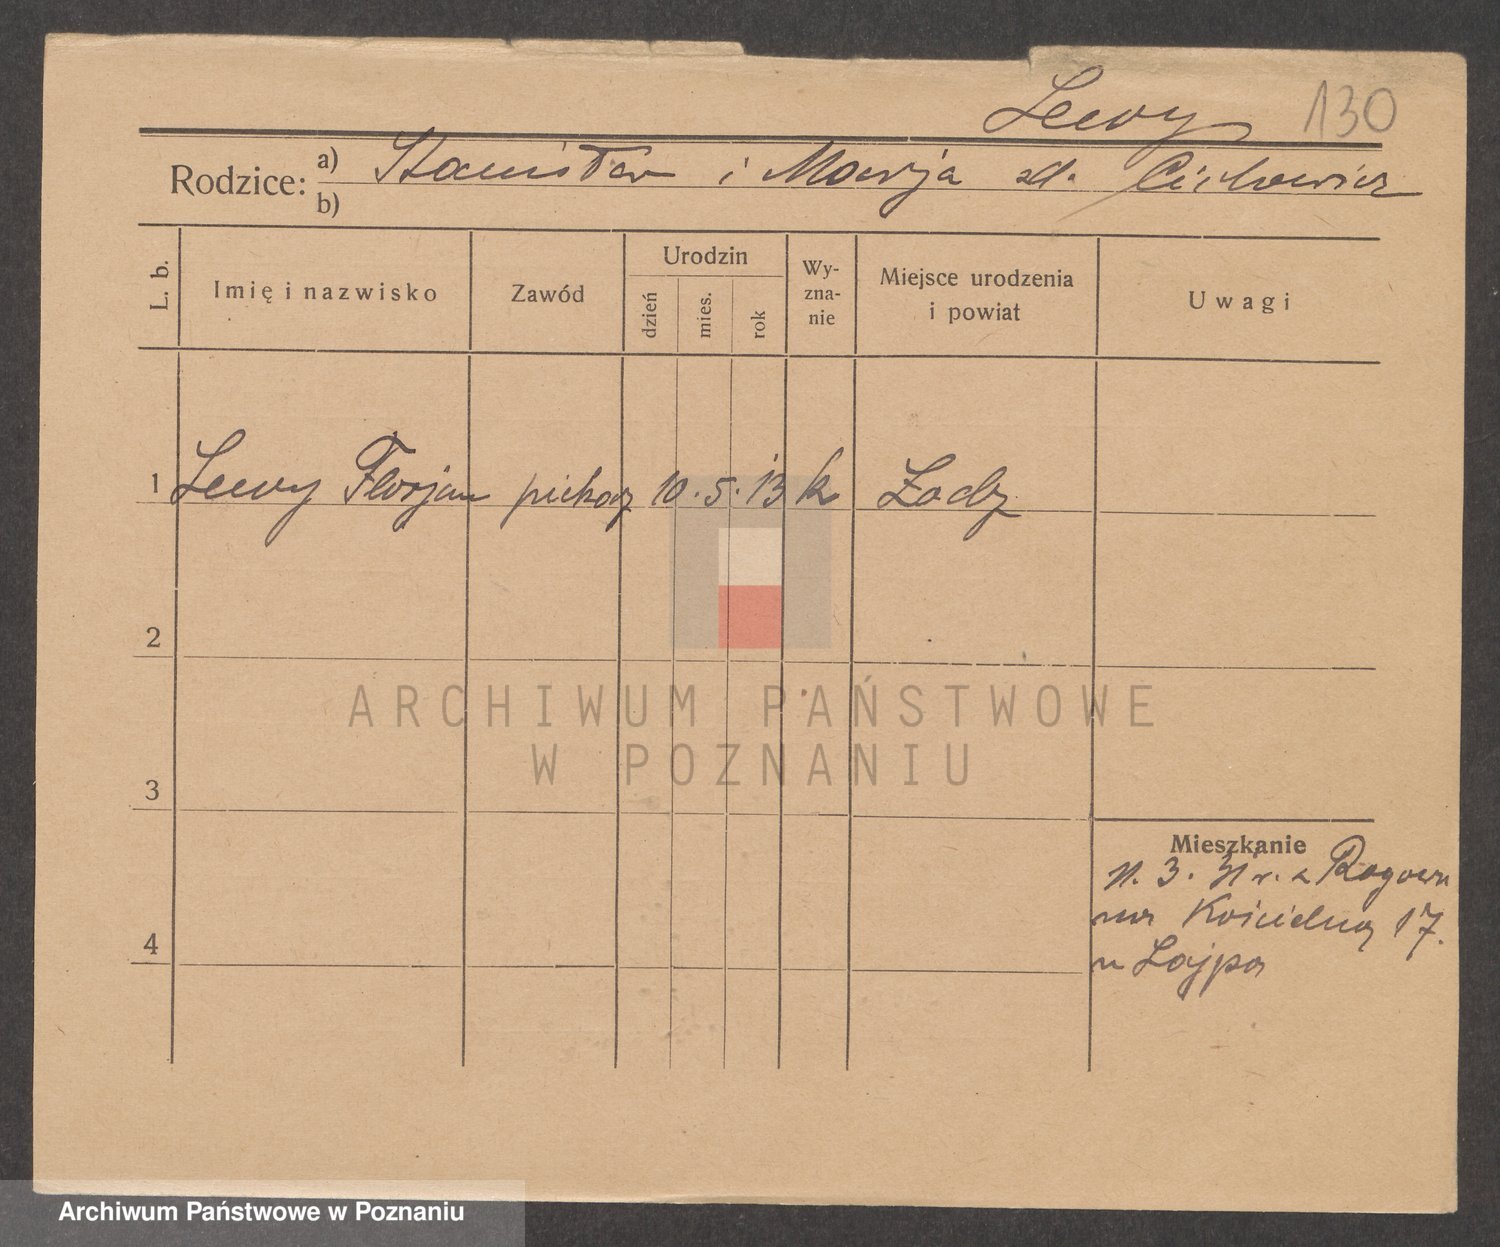 Lewy 130
Rodzice: a) Stanisław i Marja zd. Cichowicz
b)
L. b. Imię i nazwisko Zawód Urodzin dzień mies. rok Wy-zna-nie Miejsce urodzenia i powiat Uwagi
1 Lewy Florjan piekarz 10. 5. 13 k Łodz
2
ARCHIWUM PAŃSTWOWE
W POZNANIU
3
Mieszkanie
11. 3. 31 r. z Rogowa
na Kościelną 17.
4
u Lajpa
Archiwum Państwowe w Poznaniu